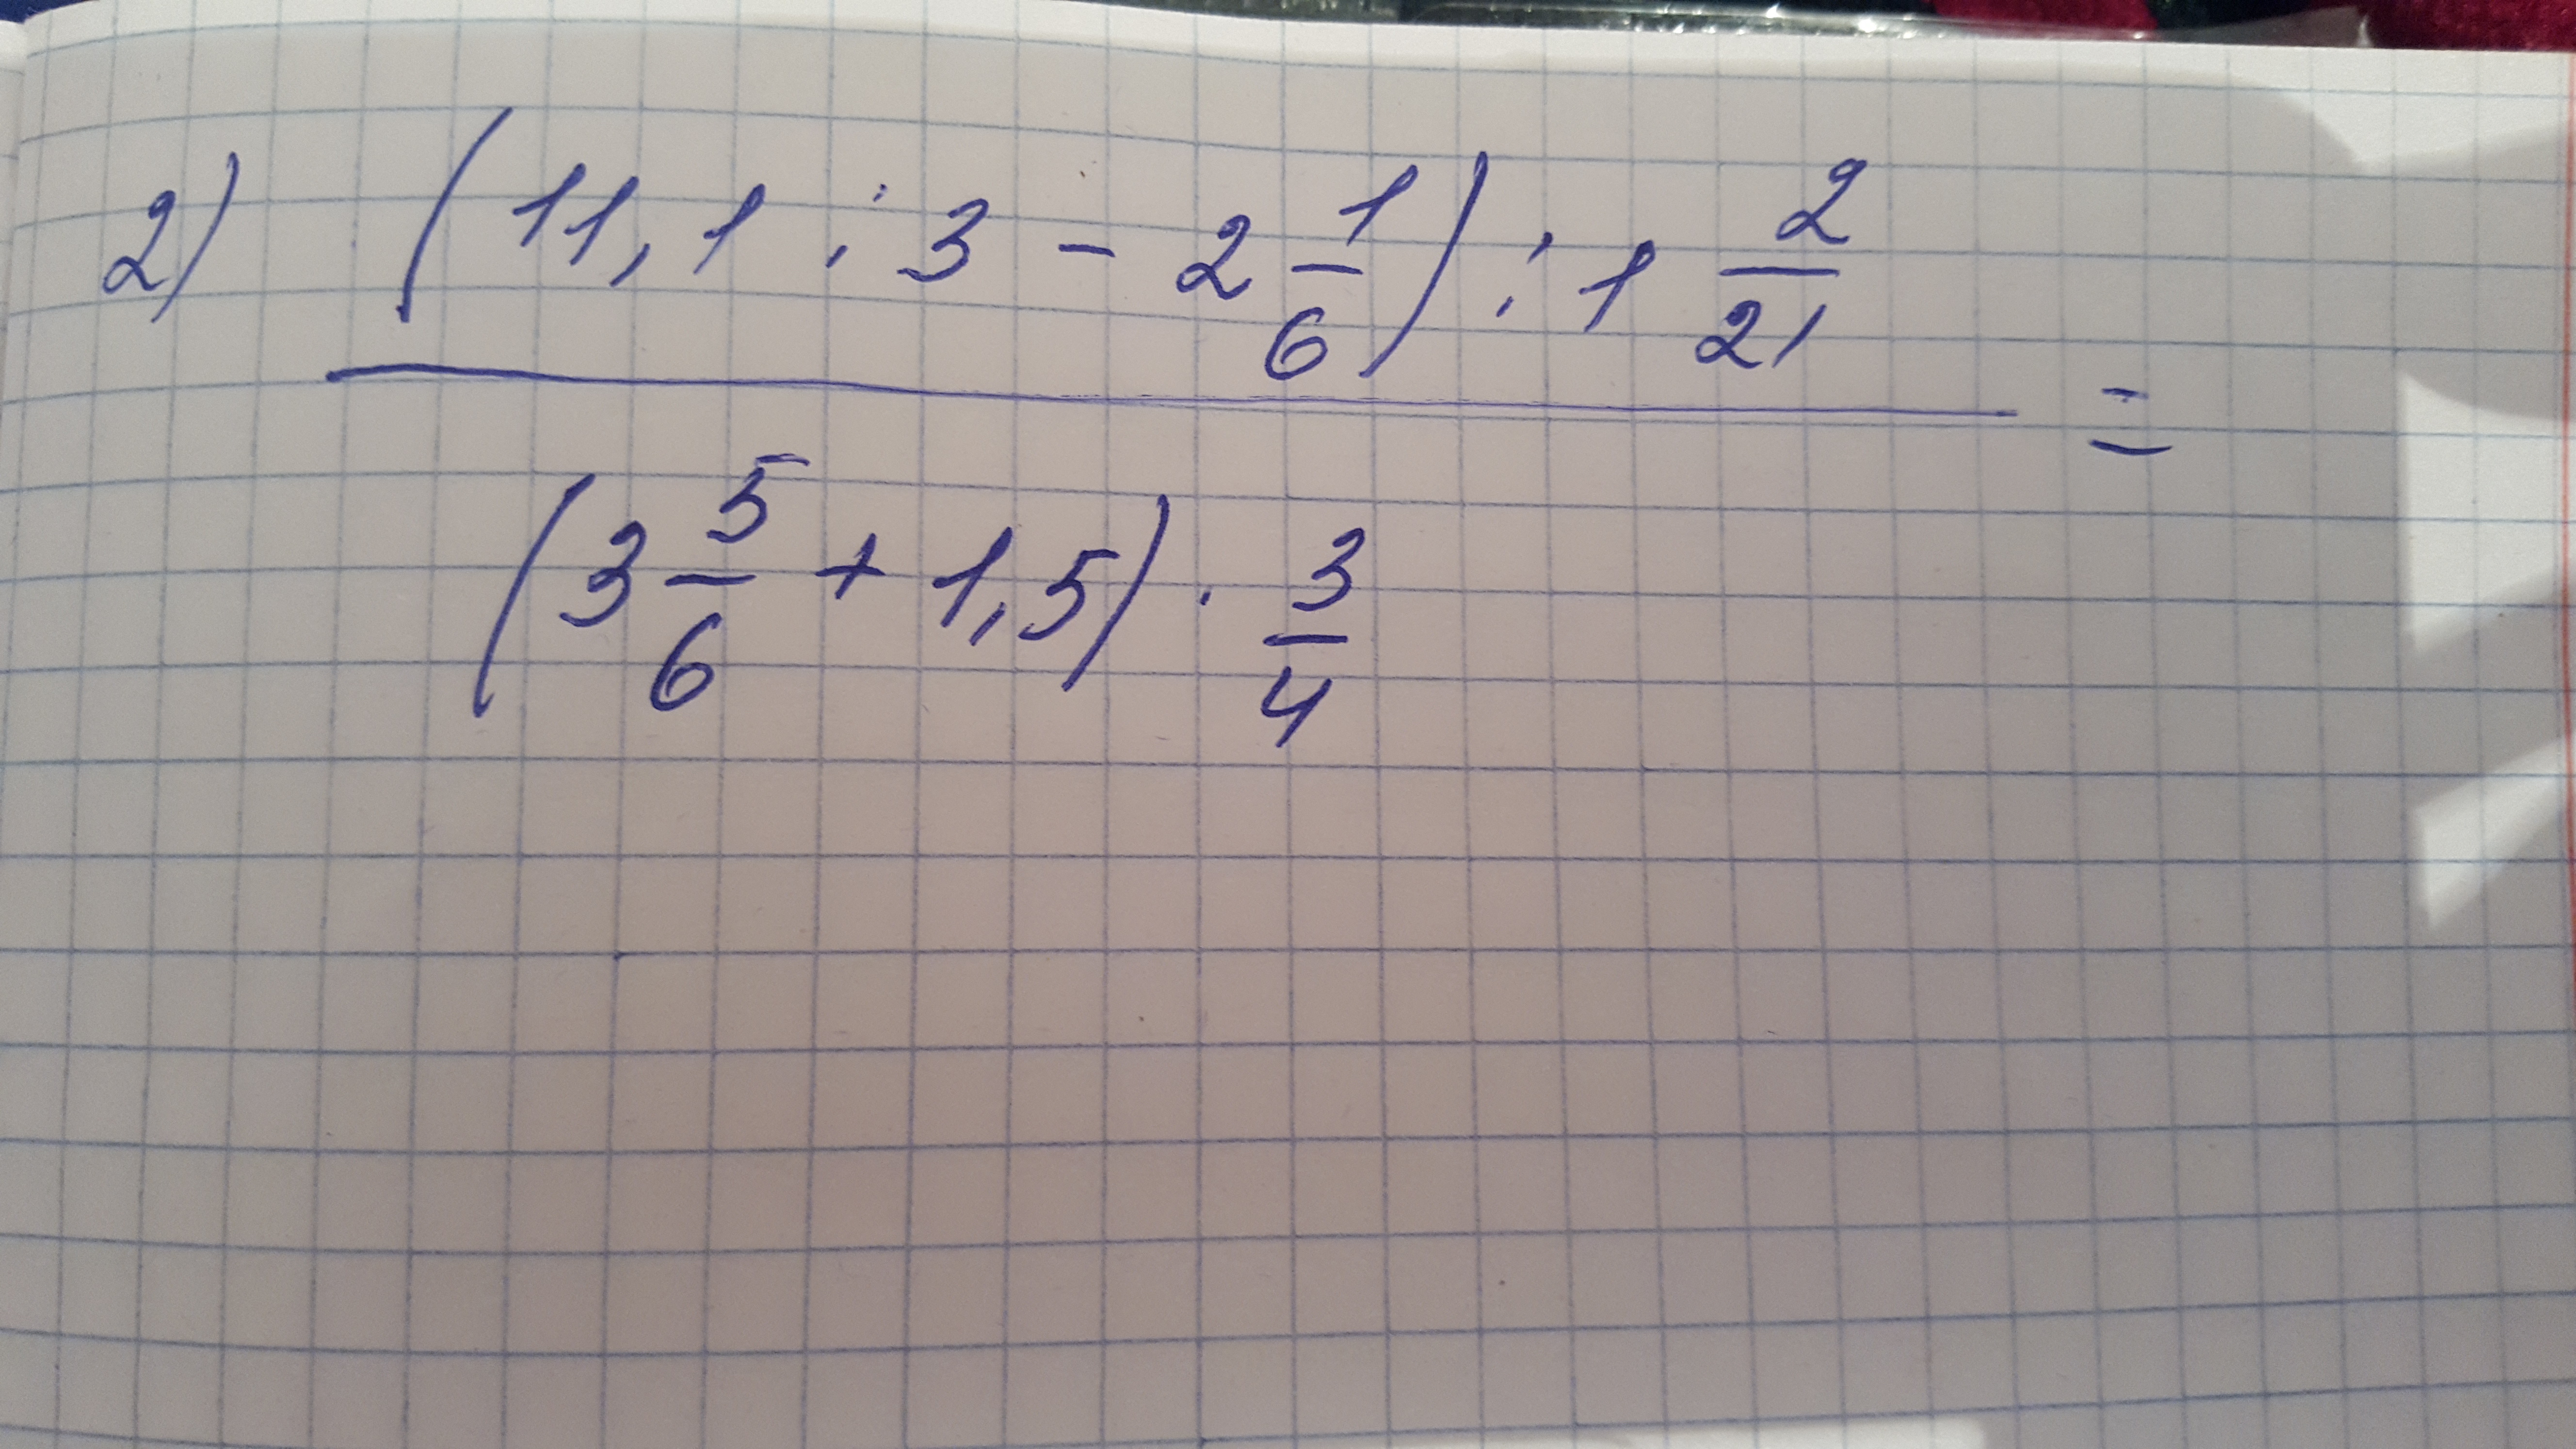 2) (11,1 : 3 - 2 1/6) : 1 2/21
=
(3 5/6 + 1,5) · 3/4